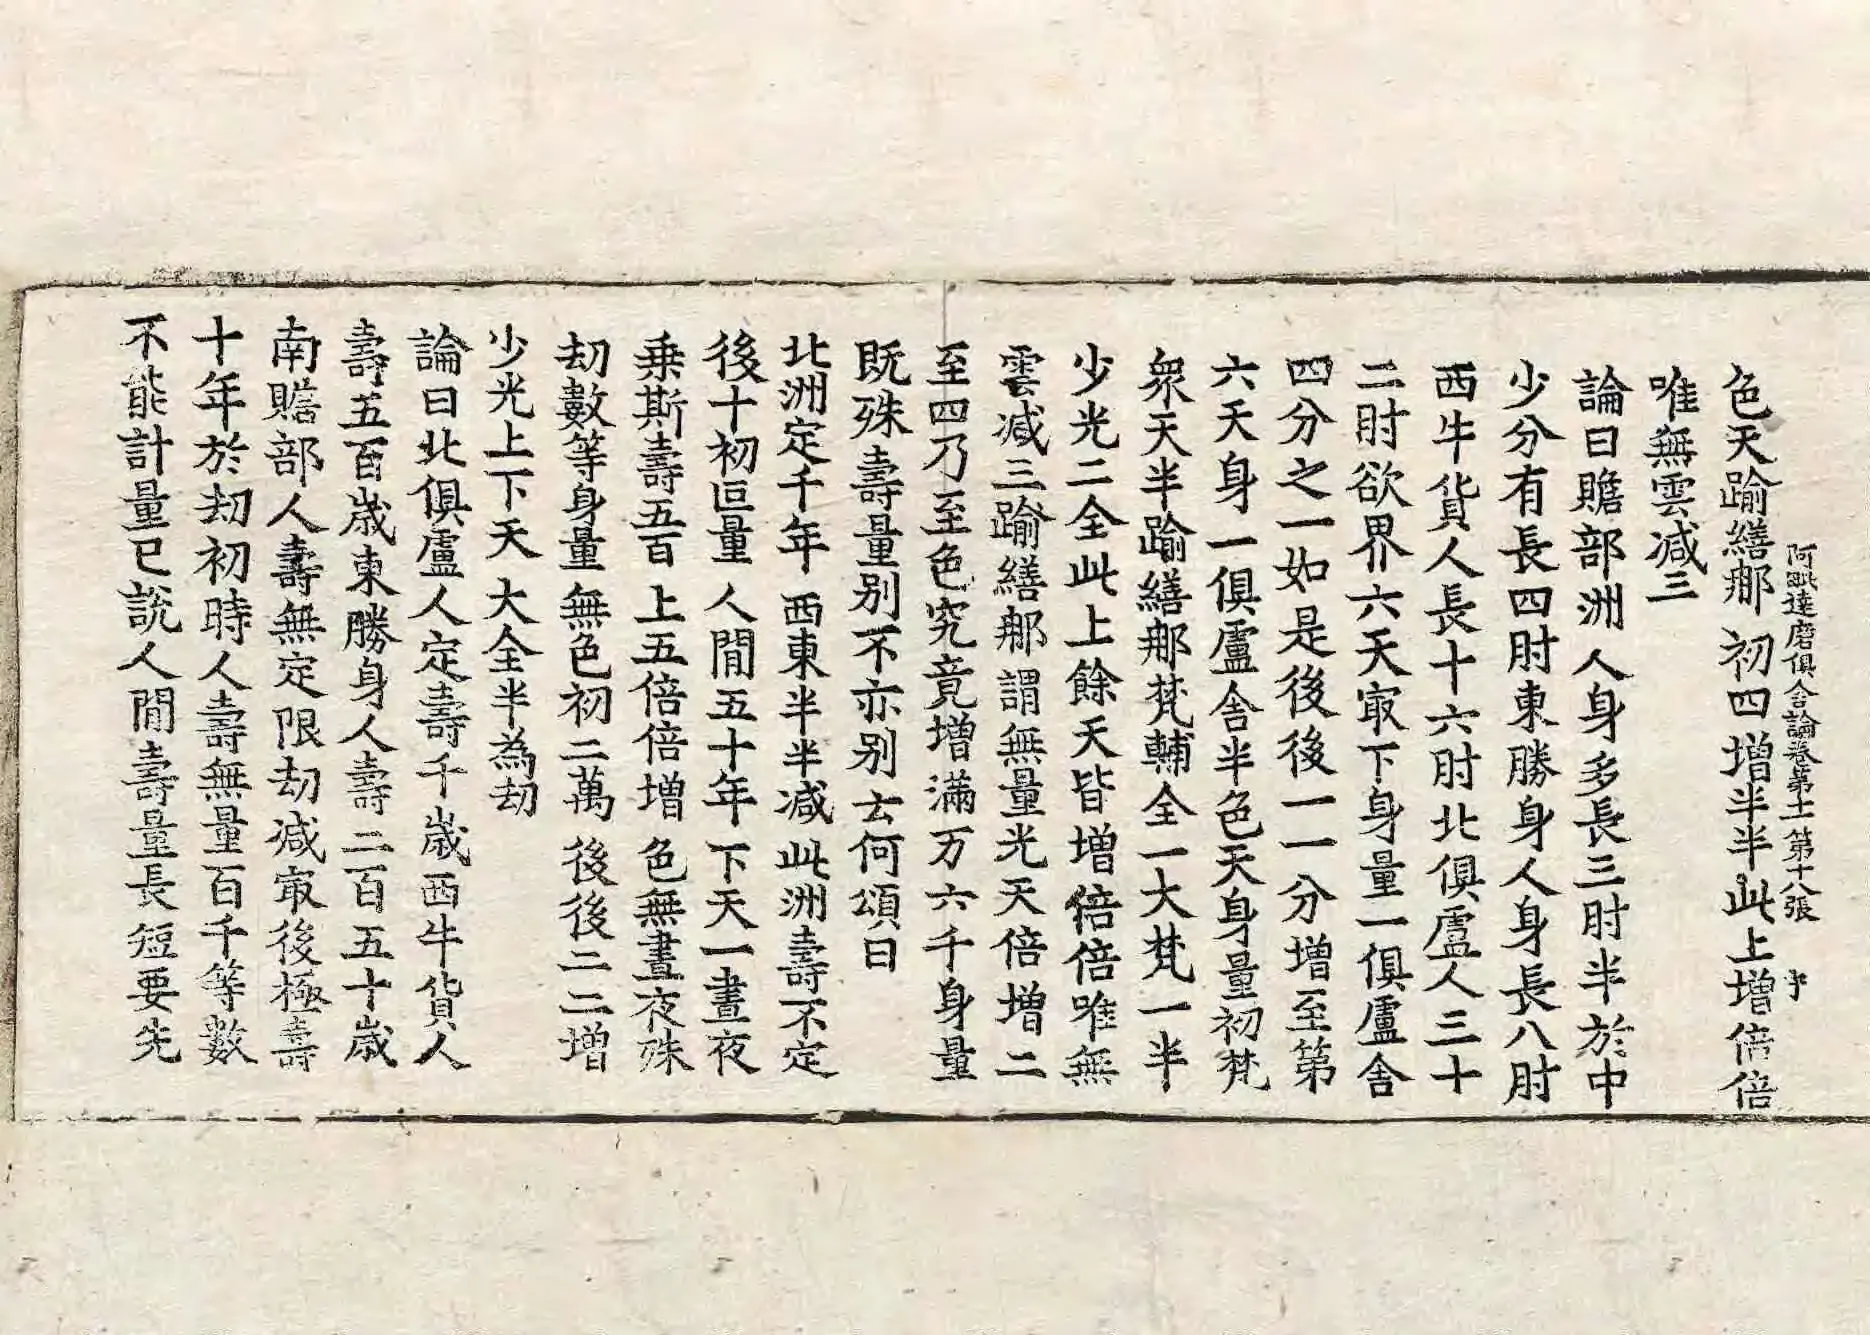 阿毗達磨俱舍論卷第十一 第十八張 𡨥
色天踰繕那 初四增半半 此上增倍倍
唯無雲减三
論曰贍部洲人身多長三肘半於中
少分有長四肘東勝身人身長八肘
西牛貨人長十六肘北俱盧人三十
二肘欲界六天㝡下身量一俱盧舍
四分之一如是後後一一分增至第
六天身一俱盧舍半色天身量初梵
衆天半踰繕那梵輔全一大梵一半
少光二全此上餘天皆增倍倍唯無
雲减三踰繕那謂無量光天倍增二
至四乃至色究竟增滿万六千身量
既殊壽量别不亦别云何頌曰
北洲定千年 西東半半减 此洲壽不定
後十初叵量 人閒五十年 下天一晝夜
乘斯壽五百 上五倍倍增 色無晝夜殊
劫數等身量 無色初二萬 後後二二增
少光上下天 大全半為劫
論曰北俱盧人定壽千歲西牛貨人
壽五百歲東勝身人壽二百五十歲
南贍部人壽無定限劫减㝡後極壽
十年於劫初時人壽無量百千等數
不能計量已說人閒壽量長短要先